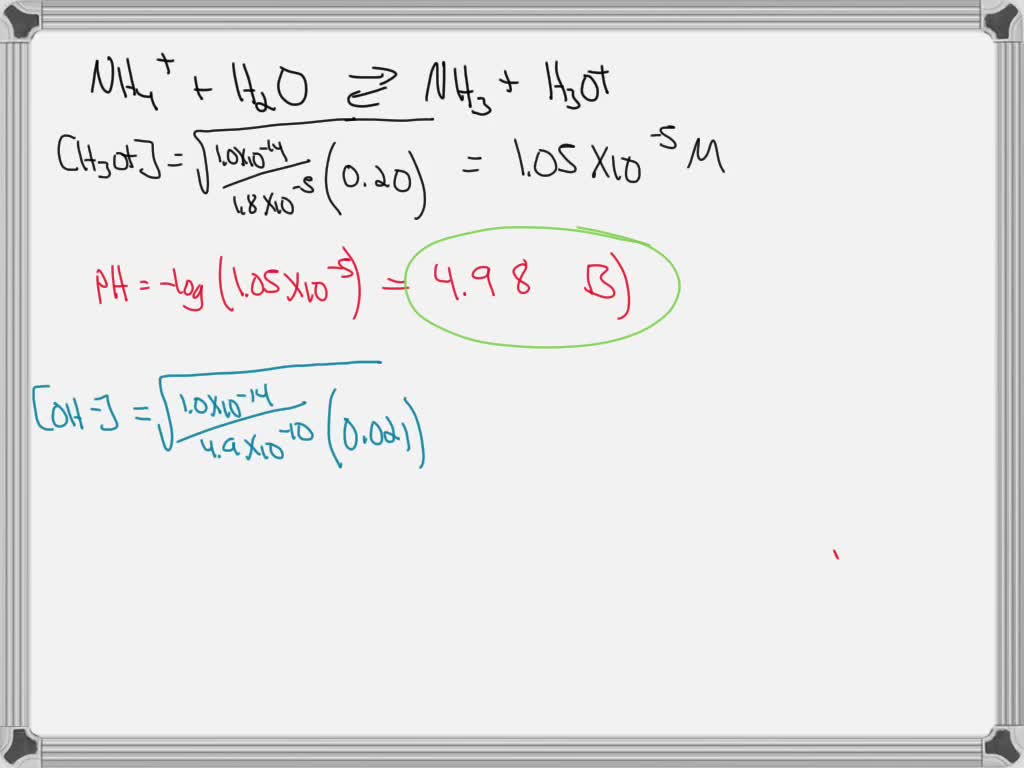 NH4+ + H2O ⇌ NH3 + H3O+
[H3O+] = √(1.0X10^-14 / 1.8X10^-5 (0.20)) = 1.05 X10^-5 M
pH = -log (1.05X10^-5) = 4.98 B)
[OH-] = √(1.0X10^-14 / 4.9X10^-10 (0.021))